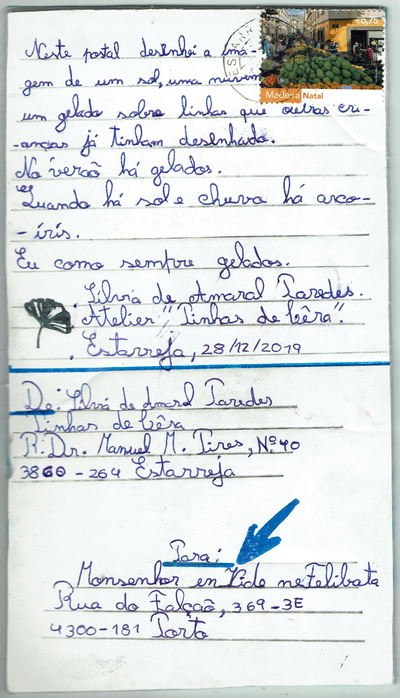 Neste postal desenhei a ima-
gem de um sol, uma nuvem
um gelado sobre linhas que outras cri-
-anças já tinham desenhado.
No verão há gelados.
Quando há sol e chuva há arco-
-íris.
Eu como sempre gelados.
. Sílvia de Amaral Paredes.
. Atelier "Linhas de Cêra".
. Estarreja, 28/12/2019
De: Sílvia de Amaral Paredes
Linhas de Cêra
R. Dr. Manuel M. Pires, Nº 40
3860 - 264 Estarreja
Para:
Monsenhor en Vide neFelibata
Rua do Falcão, 369-3E
4300-181 Porto
€0,75
Madeira Natal